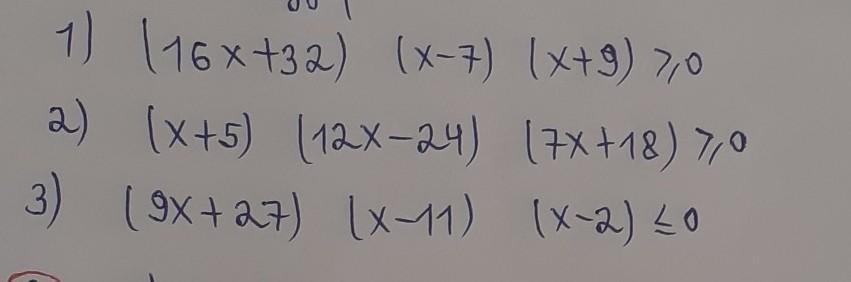 1) (16x+32) (x-7) (x+9) ⩾0
2) (x+5) (12x-24) (7x+18) ⩾0
3) (9x+27) (x-11) (x-2) ≤0